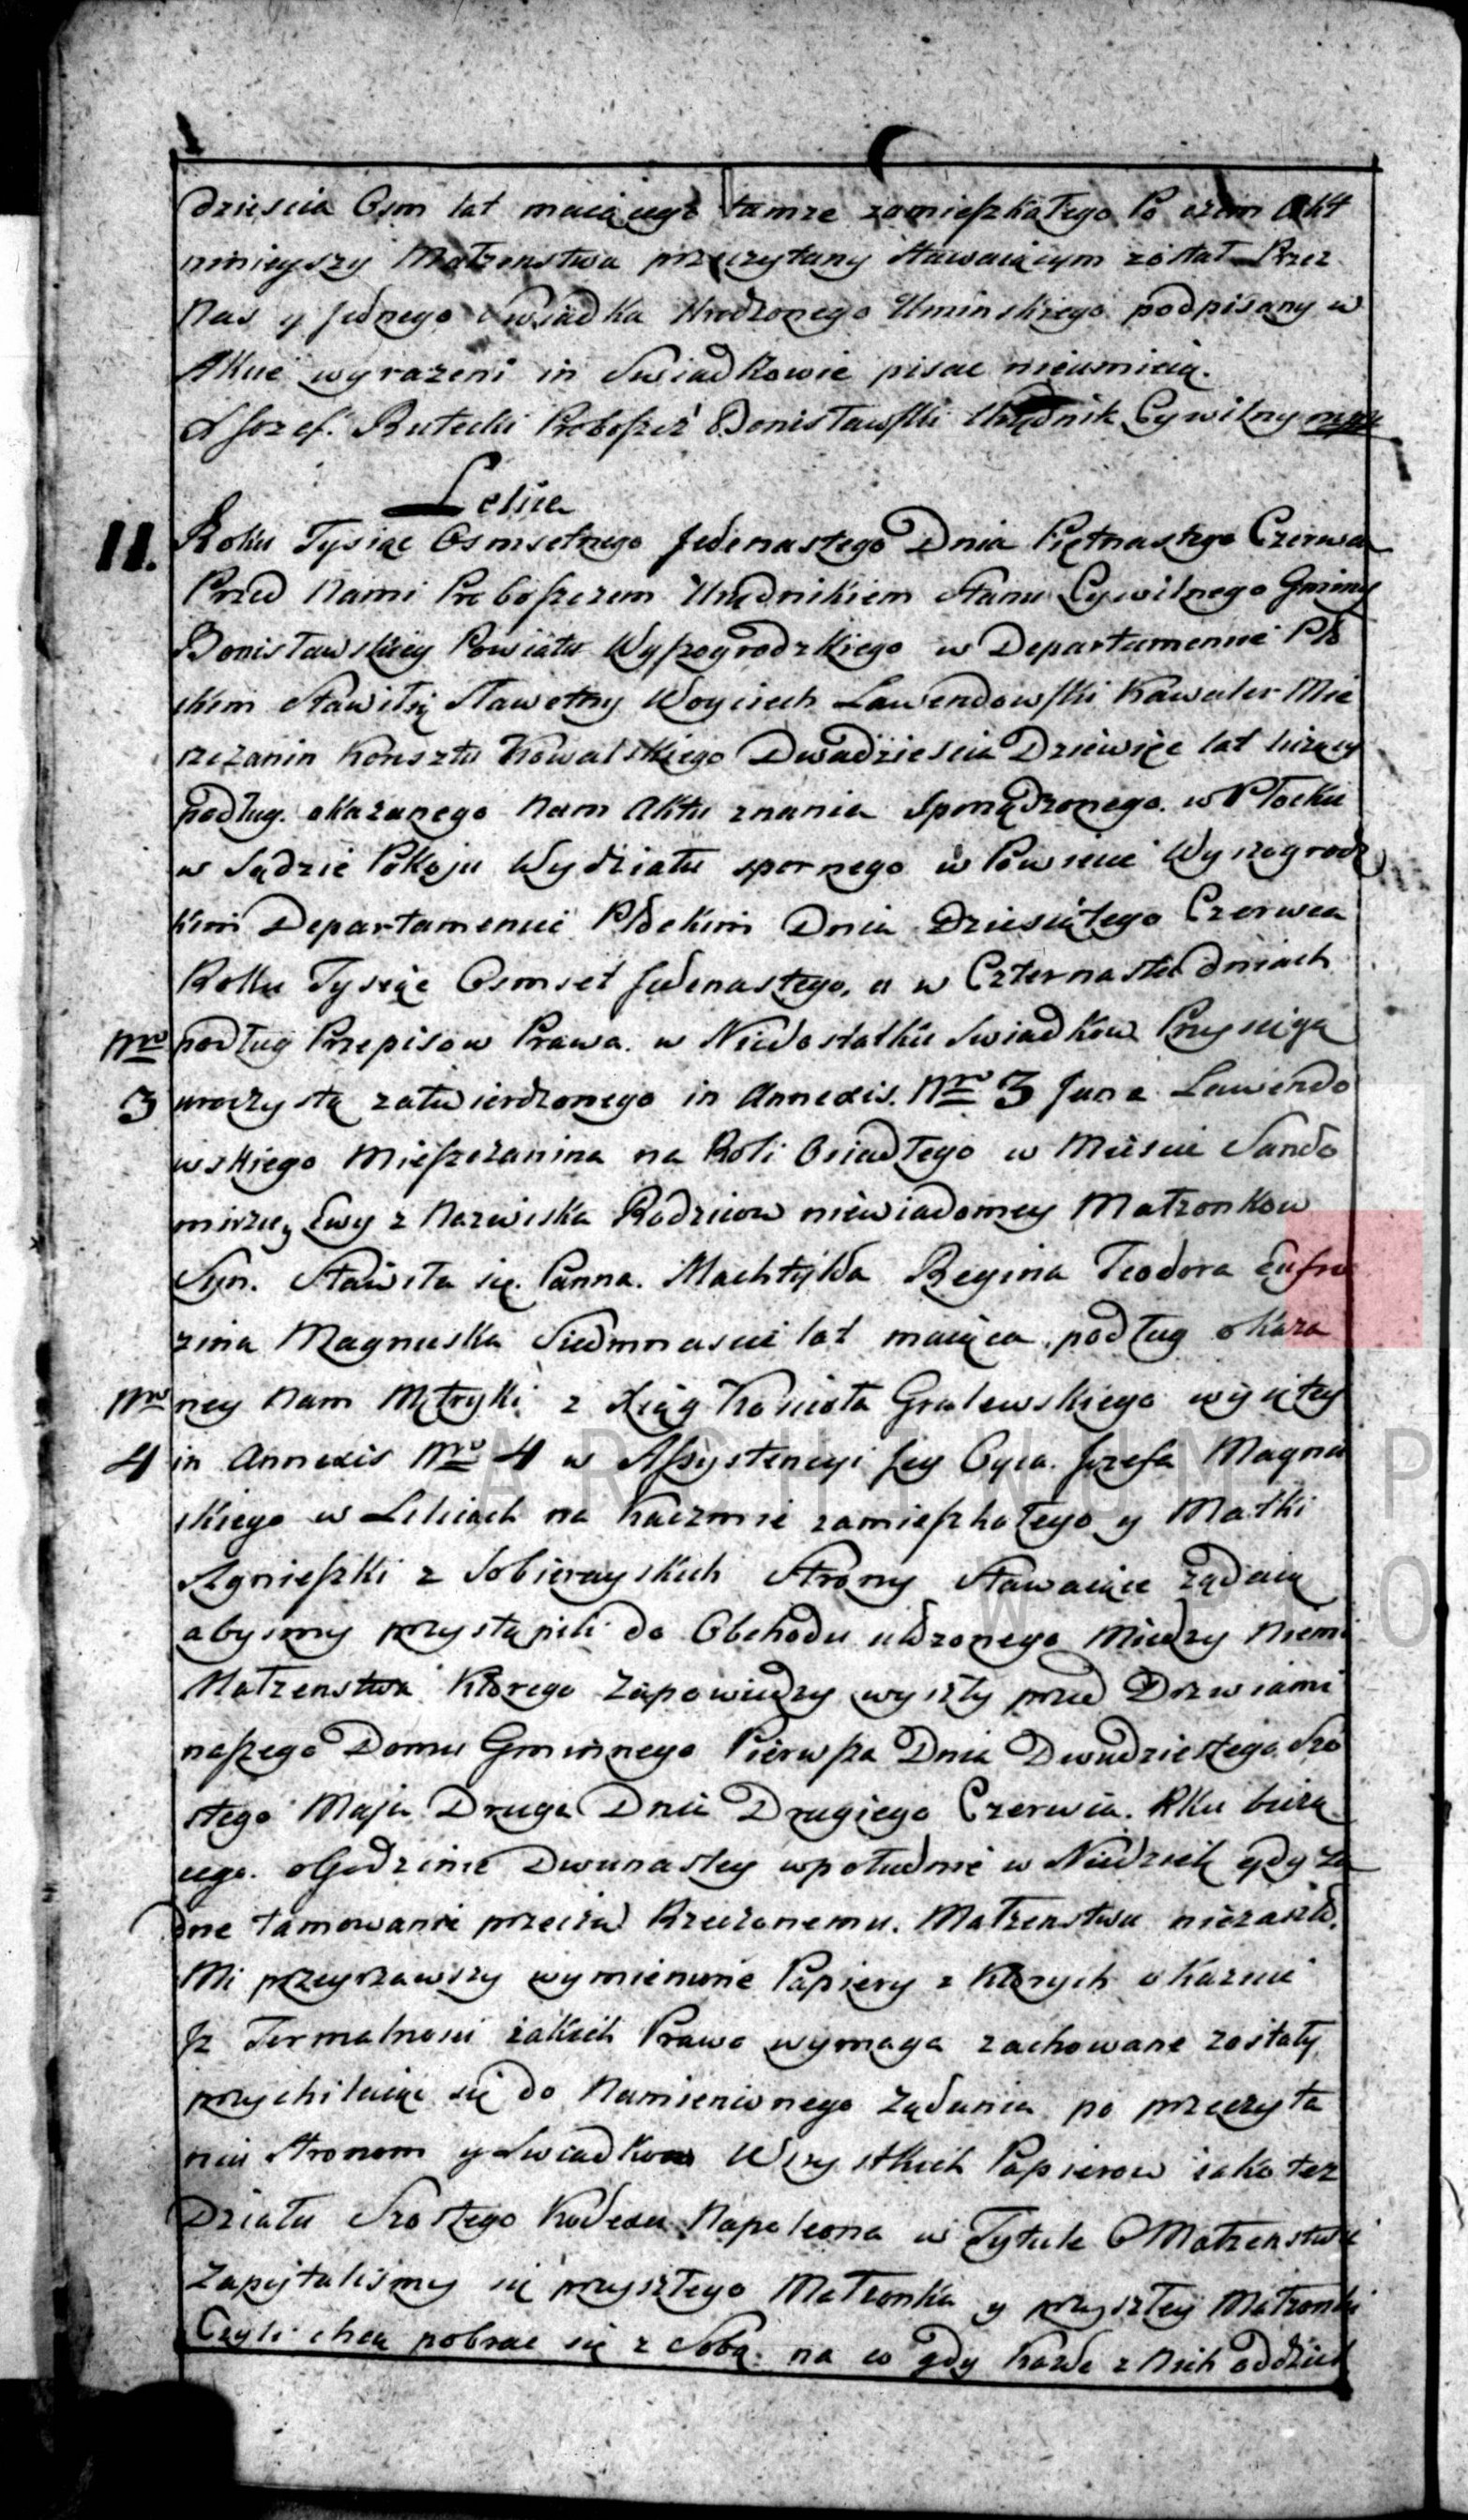 dziescia Osm lat maiącego tamze zamieszkałego Po czem Akt
ninieyszy Małzenstwa przeczytany Stawaiącym został Przez
Nas y Jednego Swiadka Urodzonego Uminskiego podpisany w
Akcie wyrazeni in Swiadkowie pisac nieumieią.
X Jozef Rutecki Proboszcz Bonisławski Urzędnik Cywilny mpp
Lelice
11. Roku Tysiąc Osmsetnego Jedenastego Dnia Piętnastego Czerwca
Przed Nami Proboszczem Urzędnikiem Stanu Cywilnego Gminy
Bonisławskiey Powiatu Wyszogrodzkiego w Departamencie Pło
ckim Stawił się Sławetny Woyciech Lawendowski Kawaler Mie
szczanin Konsztu Kowalskiego Dwadziescia Dziewięc lat liczący
podług okazanego Nam Aktu znania Sporządzonego w Płocku
w Sądzie Pokoju Wydziału spornego w Powiecie Wyszogrodz
kim Departamencie Płockim Dnia Dziesiątego Czerwca
Roku Tysiąc Osmset Jedenastego, a w Czternastu dniach
Nro podług Przepisow Prawa w Niedostatku Swiadkow Przysięgą
3 uroczystą zatwierdzonego in Annexis Nro 3 Jana Lawendo
wskiego Mieszczanina na Roli Osiadłego w Miescie Sando
mirzu y Ewy z Nazwiska Rodzicow niewiadomey Małzonkow
Syn. Stawiła się Panna Machtylda Regina Teodora Eufro
zina Magnuska Siedmnascie lat maiąca podług okaza
Nro ney Nam Metryki z Xiąg Koscioła Gralewskiego wyiętey
4 in Annexis Nro 4 w Assystencyi Jey Oyca Jozefa Magnu
skiego w Lelicach na Karczmie zamieszkałego y Matki
Agnieszki z Sobierayskich Strony Stawaiące ządaią
abysmy przystąpili do Obchodu ułozonego Między Niemi
Małzenstwa Ktorego Zapowiedzy wyszły przed Drzwiami
naszego Domu Gminnego Pierwsza Dnia Dwudziestego Szo
stego Maja Druga Dnia Drugiego Czerwca Rku bieżą
cego o Godzinie Dwunastey wpołudnie w Niedziele gdy ża
dne tamowanie przeciw Rzeczonemu Małzenstwu niezaszło
Mi przeyrzawszy wymienione Papiery z Ktorych okazuie
Jz Formalnosci iakich Prawo wymaga zachowane zostały
przychilaiąc się do Namienionego Ządania po przeczyta
niu Stronom y Swiadkom Wszystkich Papierow iako tez
Działu Szostego Kodexu Napoleona w Tytule O Małzenstwie
Zapytalismy się przyszłego Małzonka y przyszłey Małzonki
Czyli chcą pobrac się z Sobą na co gdy Kazde z Nich oddziel
ARCHIWUM P
W PŁO